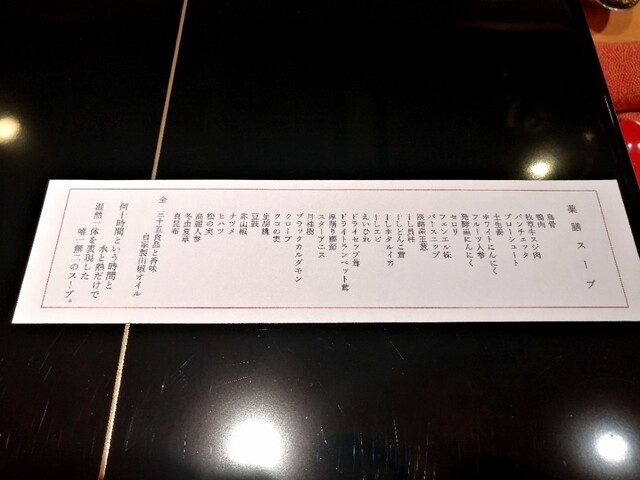 薬膳スープ
鳥骨
鴨肉
牧草牛スジ肉
パンチェッタ
プローシュート
土生姜
ホワイトにんにく
フルーツ人参
発酵黒にんにく
セロリ
フェンネル株
パースニップ
淡路産玉葱
干し貝柱
干しどんこ茸
干しホタルイカ
干しエビ
えいひれ
ドライセップ茸
ドライトランペット茸
厚削り節
スターアニス
月桂樹
ブラックカルダモン
クローブ
クコの実
生胡椒
豆鼓
赤山椒
ナツメ
ヒハツ
松の実
高麗人参
冬虫夏草
真昆布
全 三十五食品と香味
自家製山椒オイル
何十時間という時間と
水と熱だけで
混然一体を表現した
唯一無二のスープ。